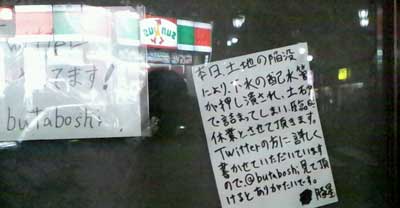 てます!
butaboshi
SUNKUS
本日土地の陥没
により、下水の配水管
が押し潰され、土石
で詰まってしまい、臨時
休業とさせて頂きます。
Twitterの方に詳しく
書かせていただいています
ので、@butaboshi見て頂
けるとありがたいです。
豚星